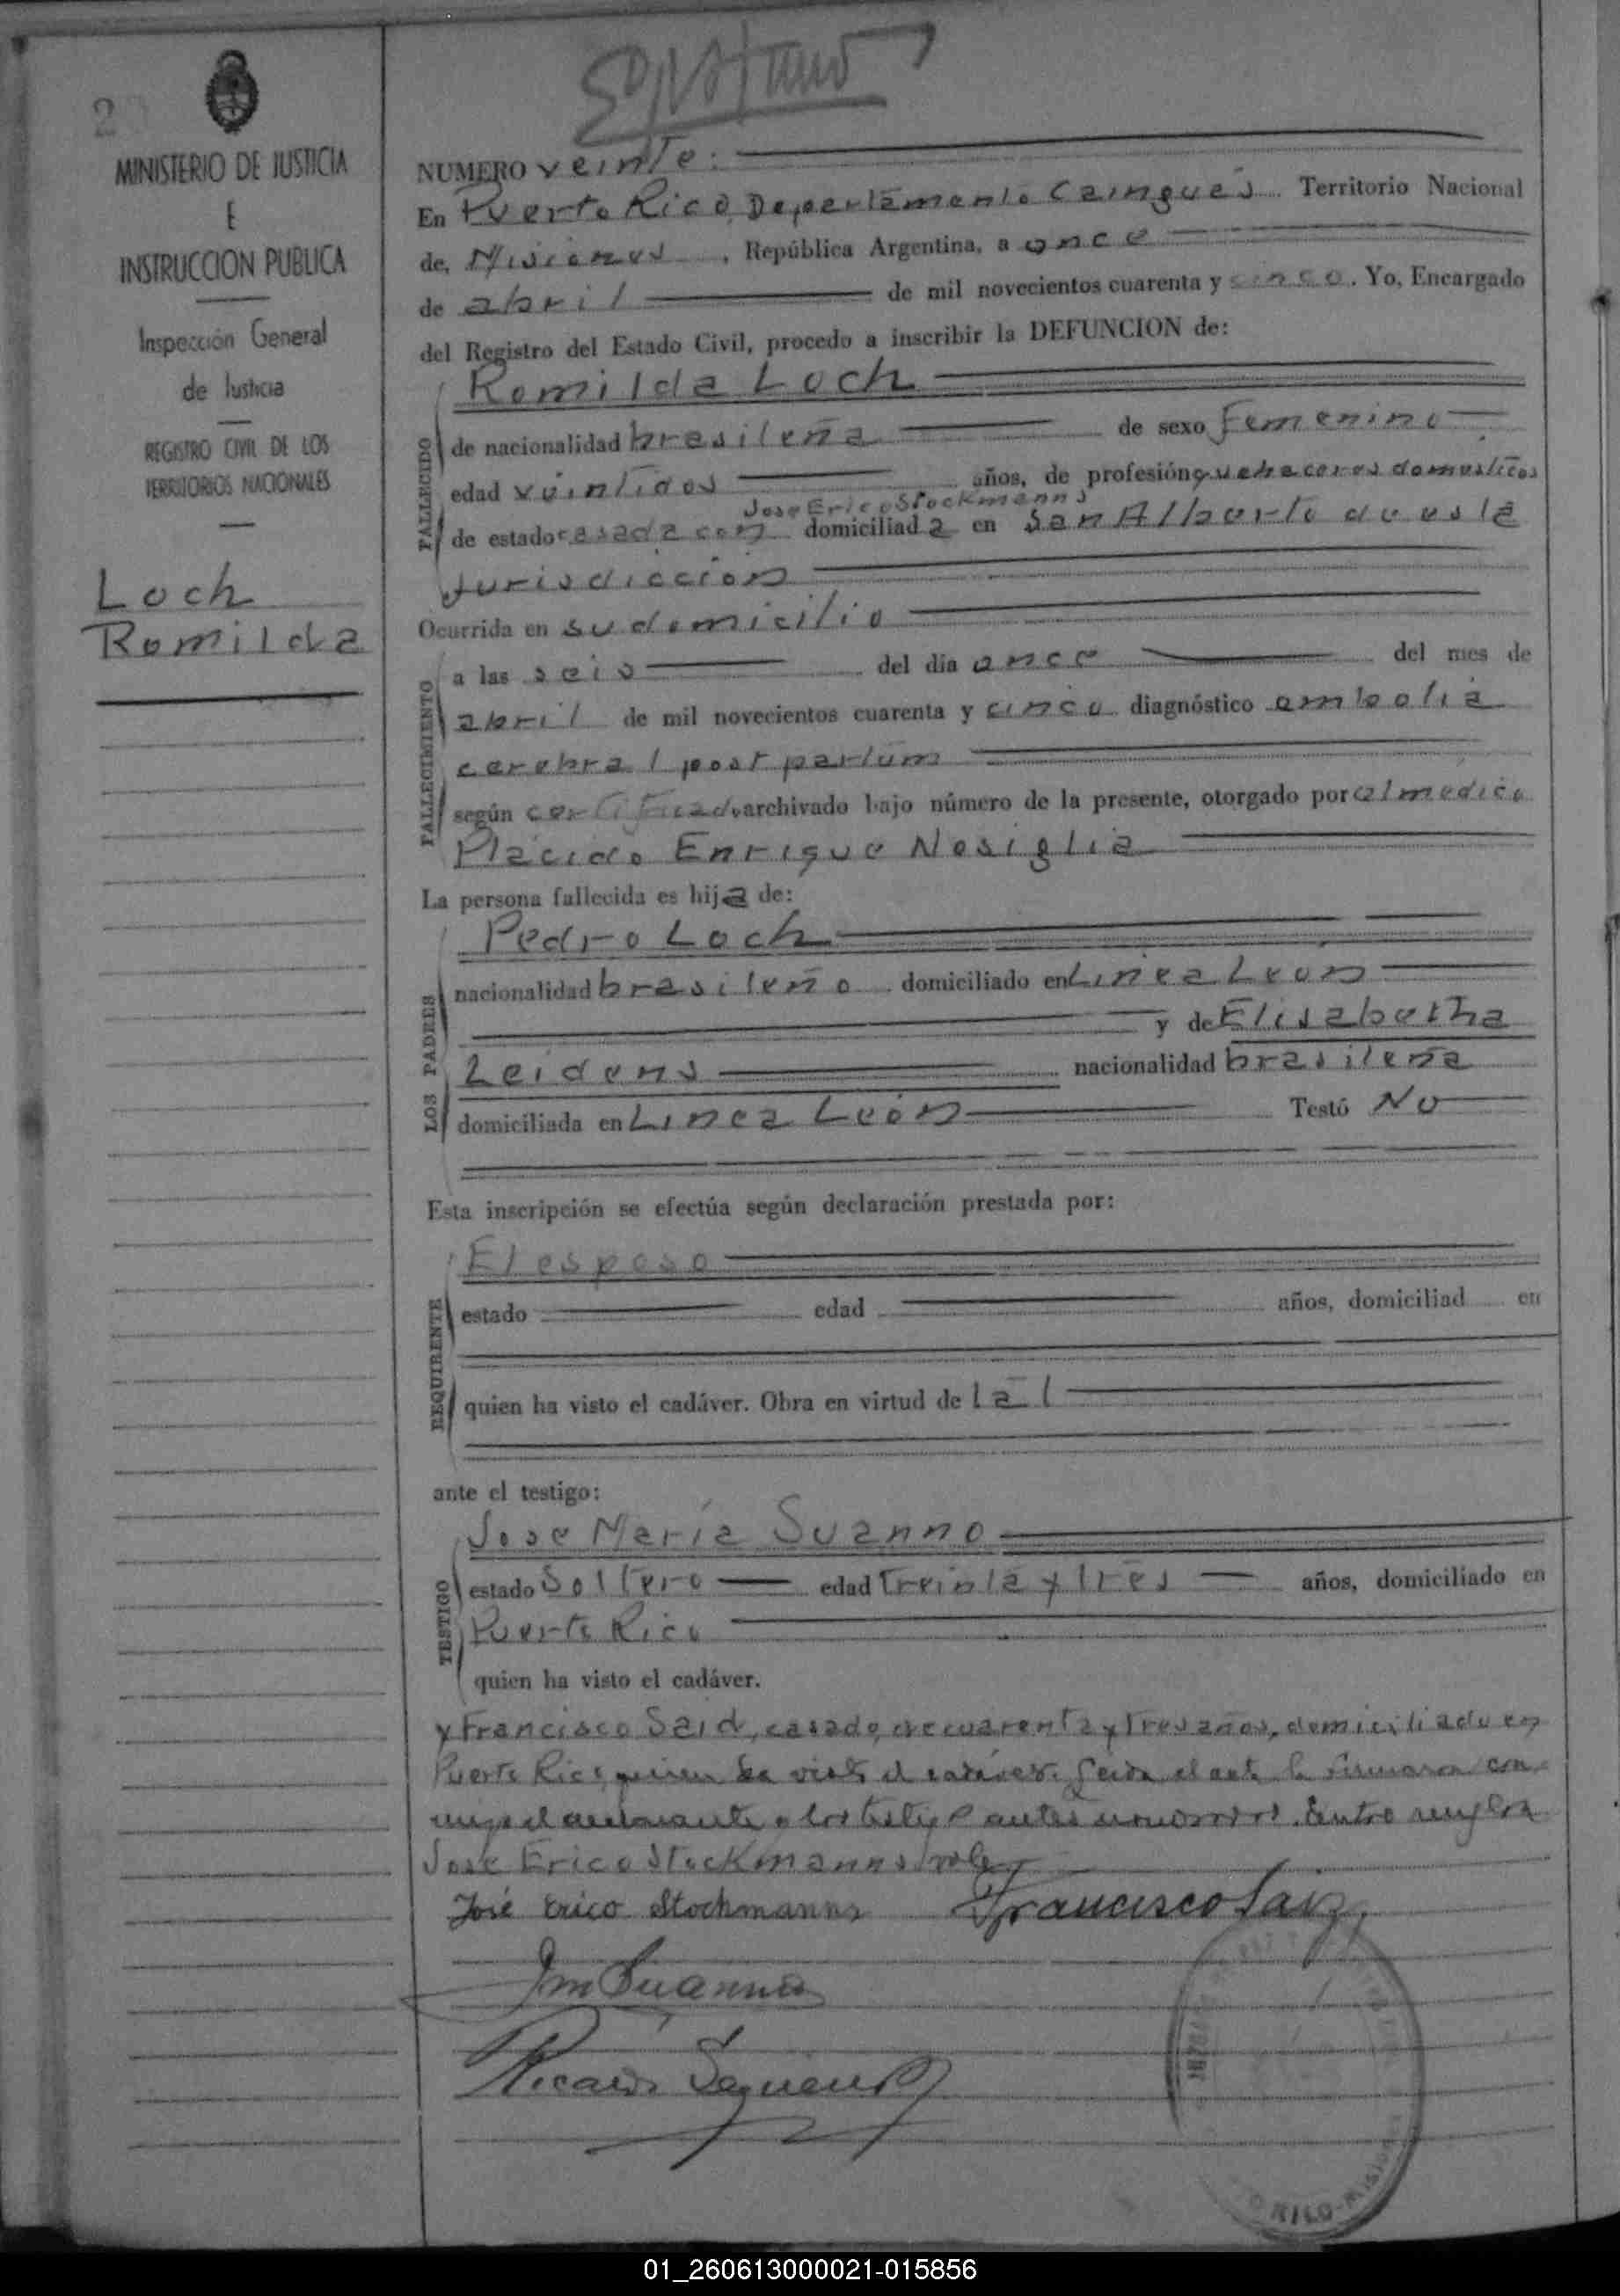 2
MINISTERIO DE JUSTICIA
E
INSTRUCCION PUBLICA
Inspección General
de Justicia
REGISTRO CIVIL DE LOS
TERRITORIOS NACIONALES
Loch
Romilda
NUMERO veinte:
En Puerto Rico, Departamento Cainguás Territorio Nacional
de, Misiones, República Argentina, a once
de abril de mil novecientos cuarenta y cinco. Yo, Encargado
del Registro del Estado Civil, procedo a inscribir la DEFUNCION de:
Romilda Loch
FALLECIDO
de nacionalidad brasileña de sexo Femenino
edad veintidos años, de profesión quehaceres domesticos
Jose Erico Stockmanns
de estado casada con domiciliada en San Alberto de esta
Jurisdicción
Ocurrida en su domicilio
FALLECIMIENTO
a las seis del día once del mes de
abril de mil novecientos cuarenta y cinco diagnóstico embolia
cerebral post partum
según certificado archivado bajo número de la presente, otorgado por el medico
Plácido Enrique Nosiglia
La persona fallecida es hija de:
LOS PADRES
Pedro Loch
nacionalidad brasileño domiciliado en Linea Leon
y de Elisabetha
Leidens nacionalidad brasileña
domiciliada en Linea León Testó No
Esta inscripción se efectúa según declaración prestada por:
REQUIRENTE
El esposo
estado edad años, domiciliad en
quien ha visto el cadáver. Obra en virtud de la l
ante el testigo:
TESTIGO
Jose María Suanno
estado Soltero edad treinta y tres años, domiciliado en
Puerto Rico
quien ha visto el cadáver.
y Francisco Said, casado, de cuarenta y tres años, domiciliado en
Puerto Rico, quien ha visto el cadáver. Leida el acta la firmaron con
migo el declarante y los testigos antes nombrados. Entre renglon
José Erico Stockmanns vale
José Erico Stockmanns Francisco Saiz
Jm Suanno
RICO-MISIONES
01_260613000021-015856